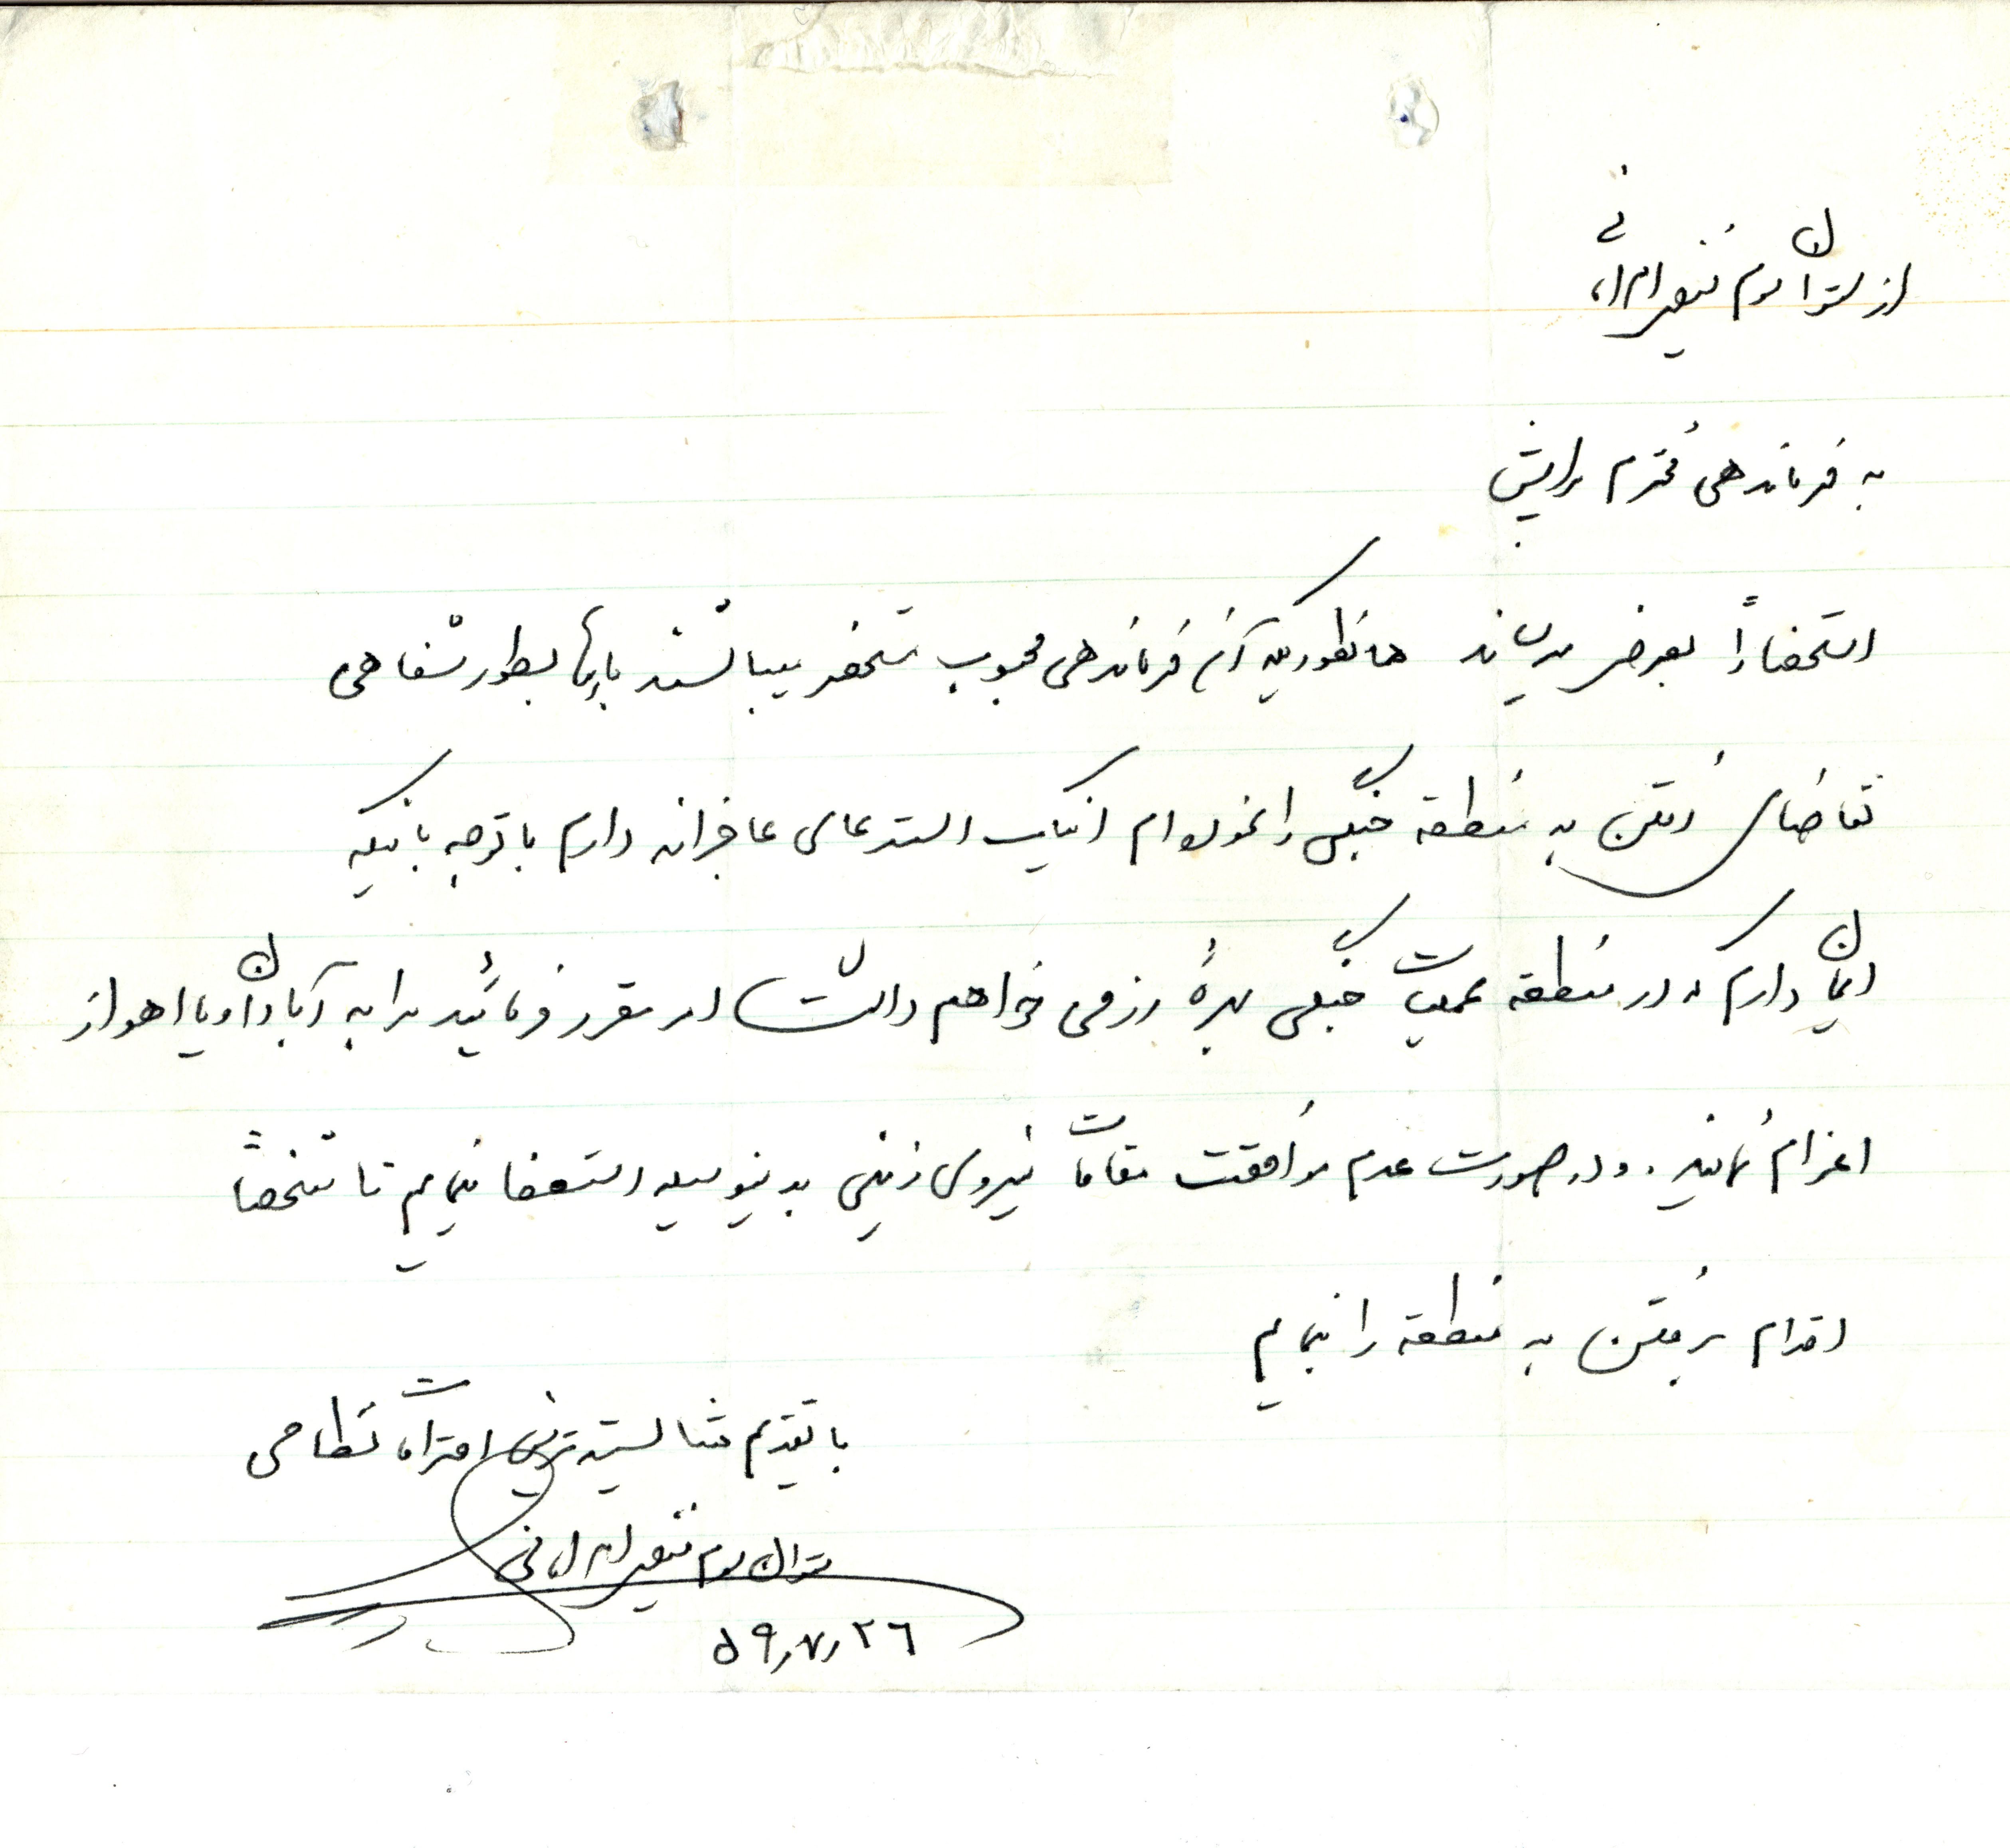 از ستوان دوم ایرانی
به فرماندهی محترم
استحضاراً بعرض میرساند همانطوریکه آن فرماندهی محبوب مستحضر میباشند بارها بطور شفاهی
تقاضای رفتن به منطقه جنگی را نموده ام اینک استدعای عاجزانه دارم با توجه باینکه
ایمان دارم که در منطقه عملیات جنگی بهرهٔ رزمی خواهم داشت امر مقرر فرمائید مرا به آبادان و یا اهواز
اعزام نمایند. و در صورت عدم موافقت مقامات نیروی زمینی بدینوسیله استعفا مینمایم تا شخصاً
اقدام برفتن به منطقه را بنمایم
با تقدیم شایسته ترین احترامات نظامی
ستوان دوم ایرانی
۵۹٫۷٫۲۶